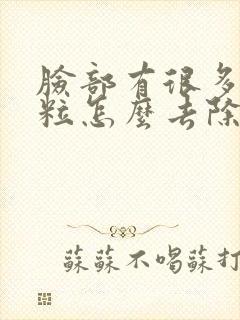 臉部有很多
粒怎麼去除
蘇蘇不喝蘇打